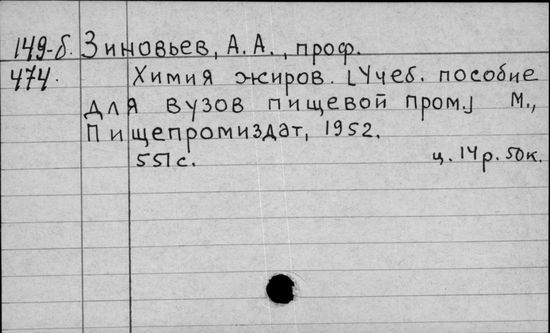 149-б. Зиновьев, А. А., проф.
474. Химия жиров. [Учеб. пособие
для вузов пищевой пром.] М.,
Пищепромиздат, 1952.
551 с. ц. 14 р. 50 к.